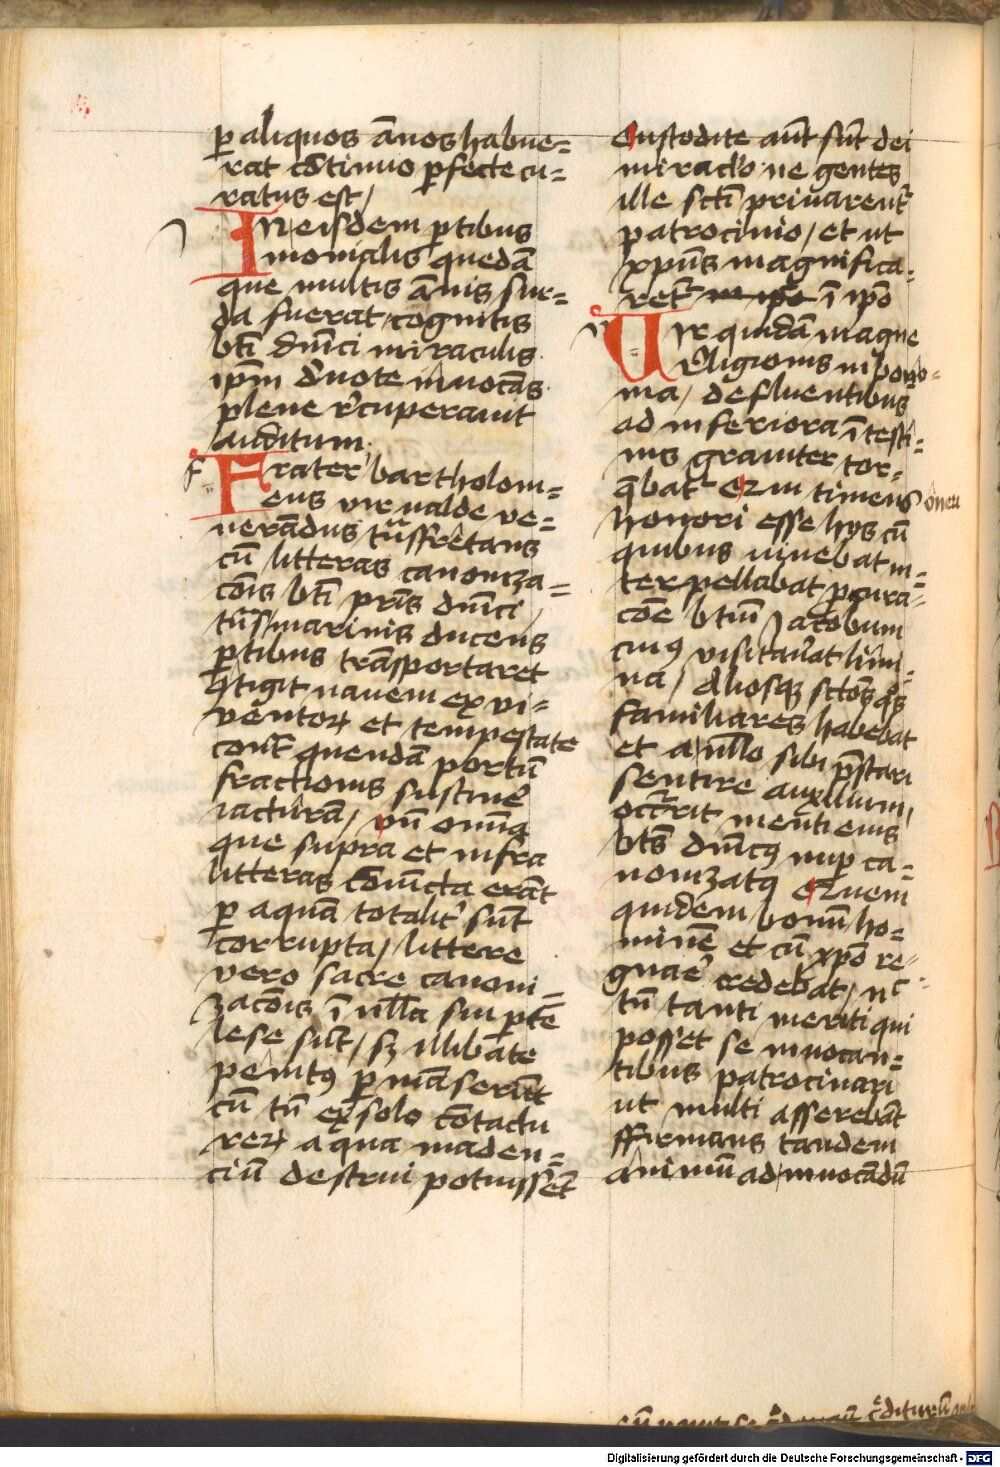 ꝑ aliquos ānos habue=
rat cōtinuo ꝑfecte cu=
ratus est /
In eisdem ꝑtibus
monialis quedā
que multis ānis sur=
da fuerat / cognitis
bti dnīci miraculis
ipm̄ deuote inuocās
plene recuperauit
auditum.
Frater bartholom=
eus vir valde ve=
nerādus transfretans
cū litteras canoniza=
cōis bti pris dnīci
marinis ducens
ꝑtibus trāsportaret
9tigit nauem ex vi=
ventoꝝ et tempestate
cont quendā portū
fractionis sustinē
iacturā / vn̄ omia
que supra et infra
litteras cōiuncta erāt
ꝑ aquā totalit sunt
corrupta / littere
vero sacre canoni=
zacōis ī nlla sui ꝑte
lese sūt / sꝫ illibate
penit9 ꝑmāserūt
cū tn̄ ex solo cōtactu
reꝝ aqua maden=
ciū destrui potuissēt
Custodite aūt sūt dei
miraclo ne gentes
ille sctī priuarent
patrocinio / et ut
xpūs magnifica=
ret ī ipo
Uir quidā magne
religionis in bono=
nia / defluentibus
ad inferiora ītesti=
nis grauiter tor=
qbat Qui timens
honori esse hys cū
quibus viuebat in=
terpellabat ꝓcura=
cōe btm̄ Jacobum
cui9 visitauat limi=
na / aliosqꝫ sctōs qs
familiares habebat
et a nllo sibi p̄stari
sentire auxilium /
occrrit menti eius
bts dnīc9 nuꝑ ca=
nonizat9 Quem
quidem bonū ho=
minē et cū xpō re=
gnare credebat / nc
tn̄ tanti meriti qui
posset se inuocan=
tibus patrocinari
ut multi asserebāt
ffirmans tandem
animū ad inuocādū
Digitalisierung gefördert durch die Deutsche Forschungsgemeinschaft - DFG